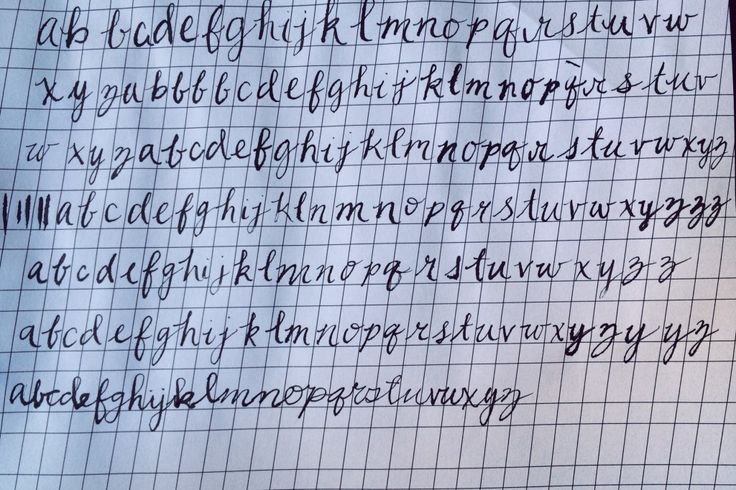 ab bcdefghijklmnopqrstuvw
xyzabbbbcdefghijklmnopqrstuv
wxyzabcdefghijklmnopqrstuvwxyz
abcdefghijklnmnopqrstuvwxyzzz
abcdefghijklmnopqrstuvwxyzz
abcdefghijklmnopqrstuvwxyzyyz
abcdefghijklmnopqrstuvwxyz